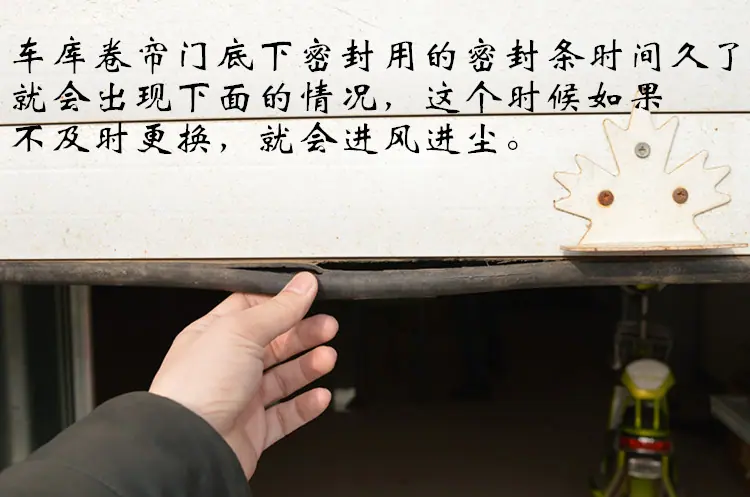 车库卷帘门底下密封用的密封条时间久了
就会出现下面的情况，这个时候如果
不及时更换，就会进风进尘。